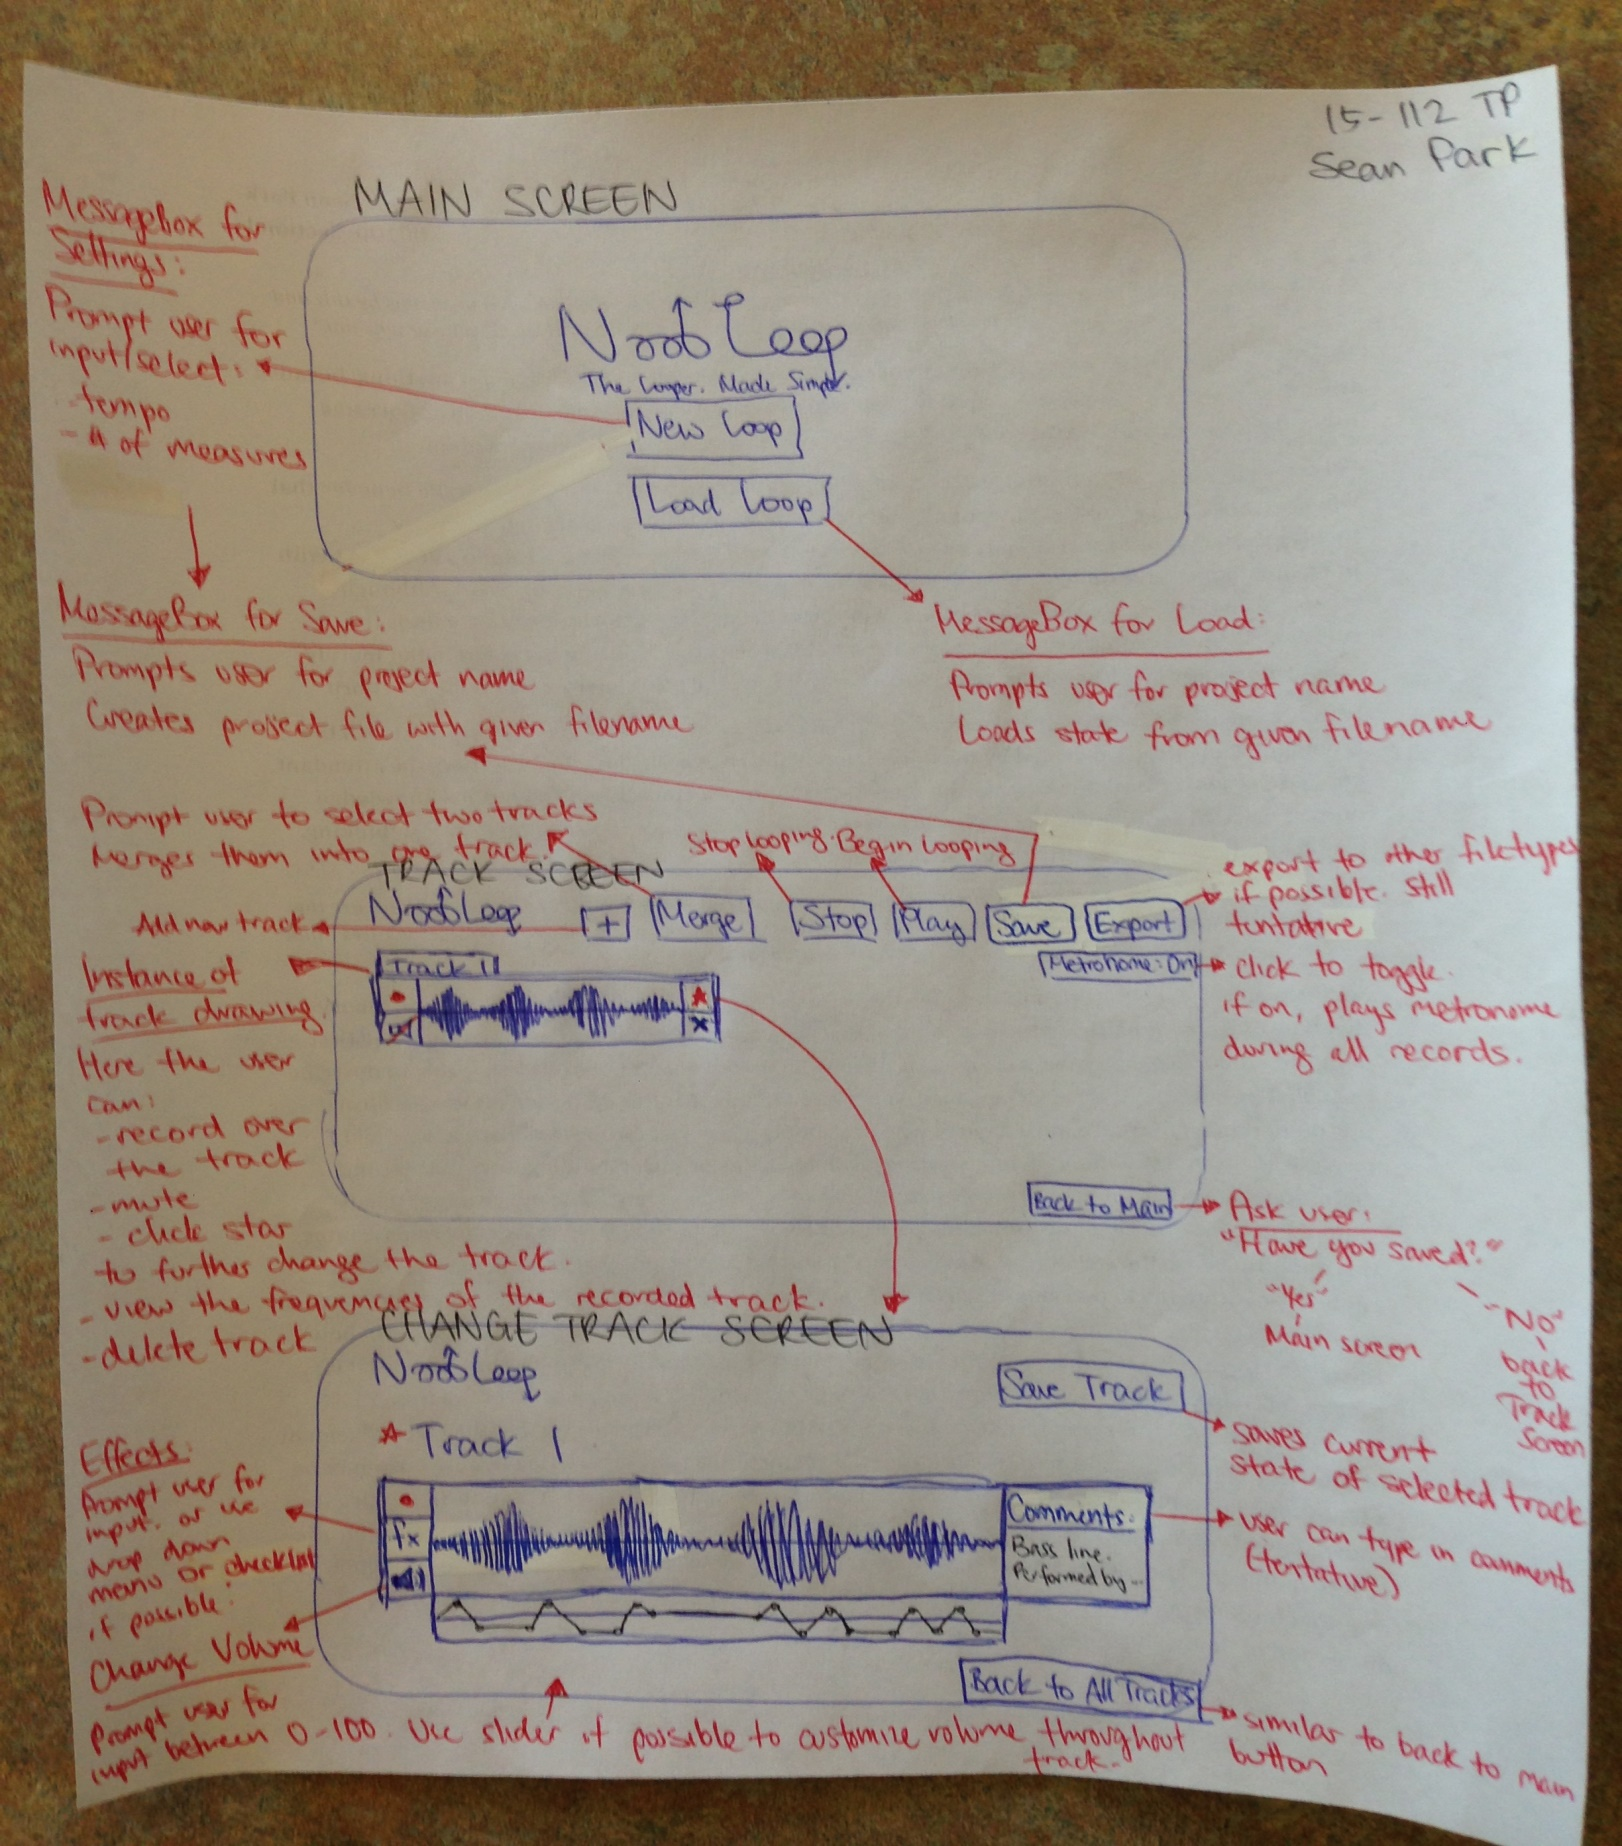 15-112 TP
Sean Park
MAIN SCREEN
MessageBox for
Settings:
Prompt user for
input/select:
- tempo
- # of measures
NoobLoop
The Looper. Made Simple.
New Loop
Load Loop
MessageBox for Save:
Prompts user for project name
Creates project file with given filename
MessageBox for Load:
Prompts user for project name
Loads state from given filename
Prompt user to select two tracks
Merges them into one track.
Stop looping.
Begin Looping
export to other filetypes
if possible. Still
tentative
TRACK SCREEN
NoobLoop
+
Merge
Stop
Play
Save
Export
Add new track
Metronome: On
click to toggle.
if on, plays metronome
during all records.
Track 1
Instance of
track drawing.
Here the user
can:
- record over
the track
- mute
- click star
to further change the track.
- view the frequencies of the recorded track.
- delete track
Back to Main
Ask user:
"Have you saved?"
"Yes"
Main screen
"No"
back
to
Track
Screen
CHANGE TRACK SCREEN
NoobLoop
Save Track
saves current
state of selected track
Track 1
Effects:
Prompt user for
input. or use
drop down
menu or checklist
if possible.
fx
Comments:
Bass line.
Performed by...
user can type in comments
(tentative)
Change Volume
Prompt user for
input between 0-100. Use slider if possible to customize volume throughout
track.
Back to All Tracks
similar to back to main
button